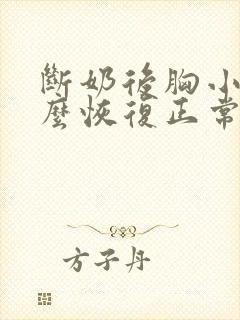 斷奶後胸小
麼恢復正常
方子丹